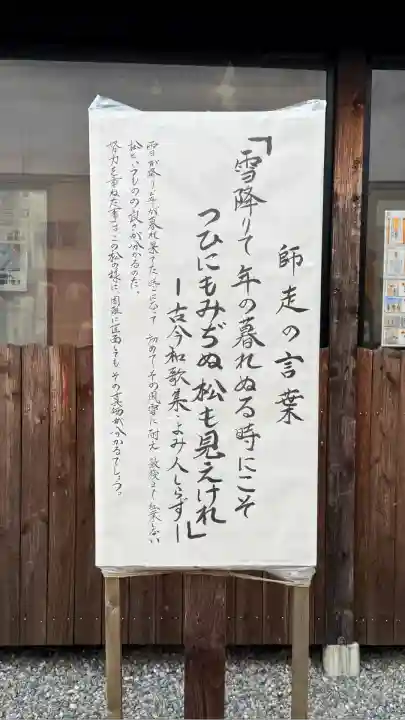 師走の言葉
「雪降りて年の暮れぬる時にこそ
つひにもみぢぬ松も見えけれ」
ー古今和歌集・よみ人しらずー
雪が降り年が暮れ果てた時になって初めてその風雪に耐え 紅葉しない
松というものの良さが分かるのだ。
努力を重ねた事はこの松の様に、困難に直面してもその真価が分かるでしょう。